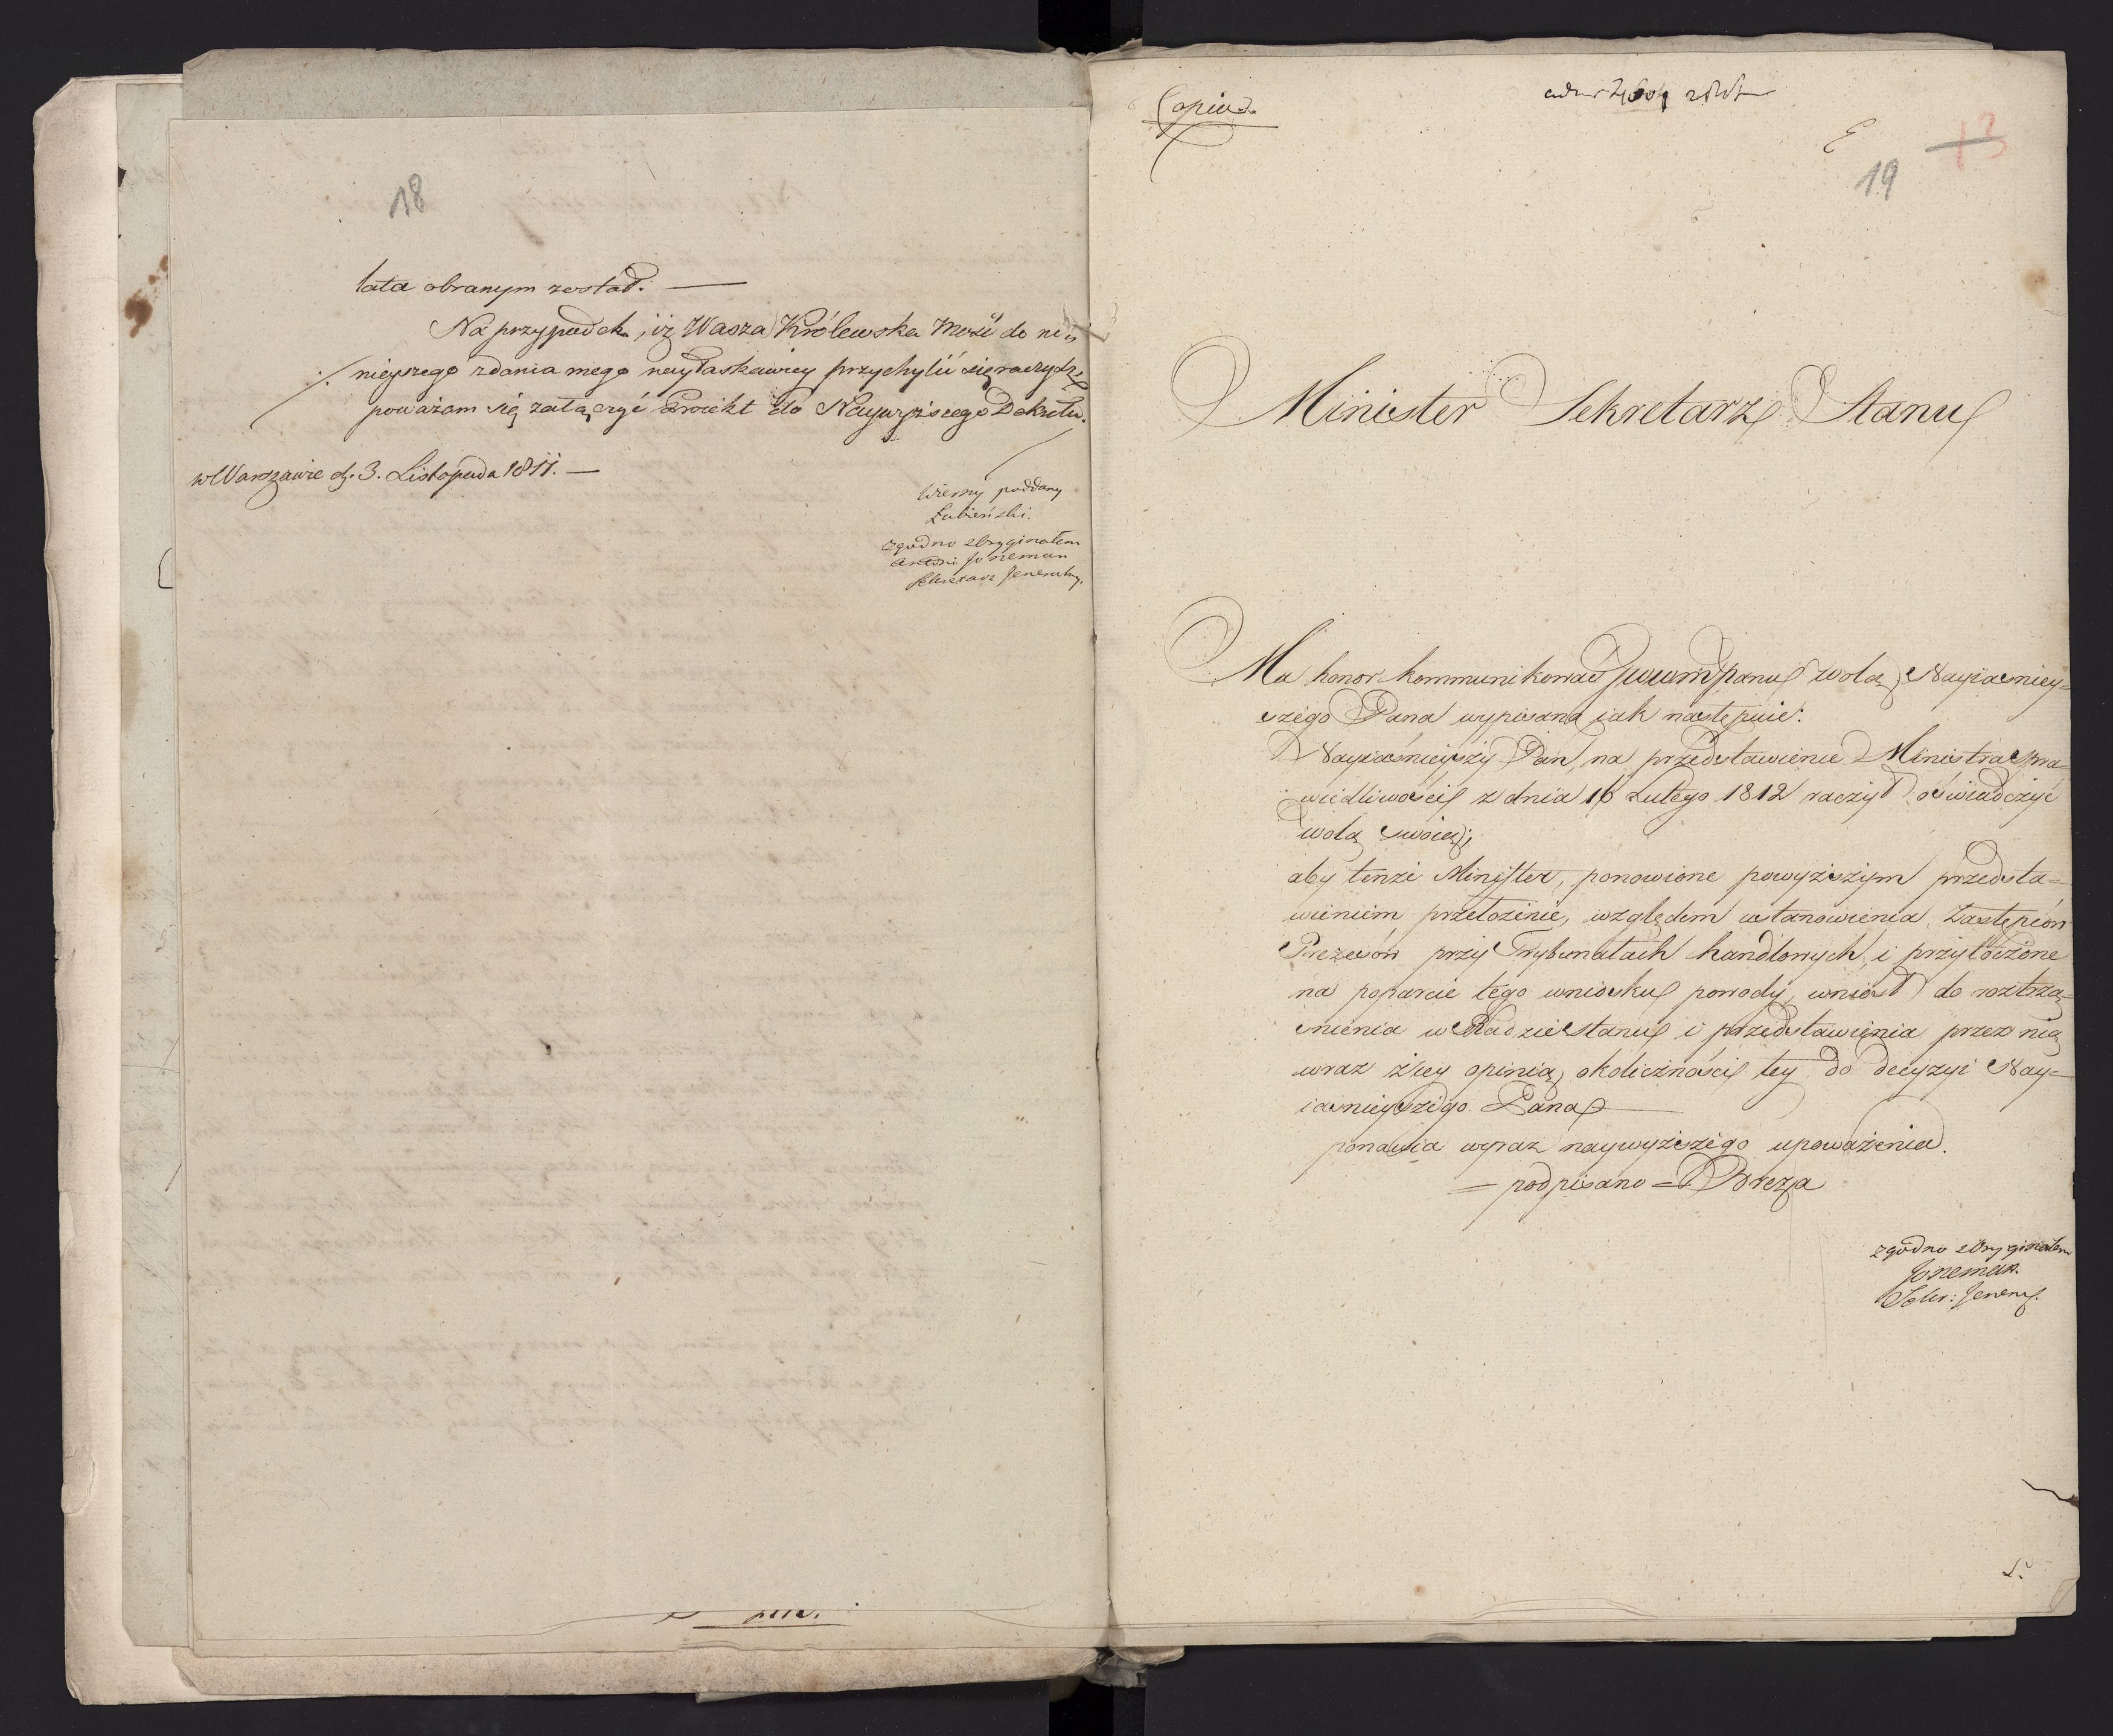 18
lata obranym został. —
Na przypadek, iż Wasza Królewska Mość do ni
nieyszego zdania mego nayłaskawiey przychylić się raczysz,
poważam się załączyć Proiekt do Naywyższego Dekretu.
w Warszawie d. 3. Listopada 1811. —
Wierny poddany
Łubieński.
zgodno z Oryginałem
Antoni Joneman
Sekretarz Jeneralny.
Copia.
19
13
Minister Sekretarz Stanu
Ma honor kommunikować JWWMPanu wolą Nayiaśniey=
szego Pana wypisaną iak następuie:
Nayiaśnieyszy Pan, na przedstawienie Ministra Spra=
wiedliwości z dnia 16 Lutego 1812 raczył oświadczyć
wolą swoię;
aby tenże Minister, ponowione powyższym przedsta=
wieniem przełożenie, względem ustanowienia Zastępców
Prezesów przy Trybunałach handlowych, i przytoczone
na poparcie tego wniosku powody, wniósł do roztrzą=
śnienia w Radzie Stanu i przedstawienia przez nią
wraz z iey opinią okoliczności tey do decyzyi Nay=
iaśnieyszego Pana —
ponawia wyraz naywyższego upoważenia.
= podpisano = Breza
zgodno z Oryginałem
Joneman.
Sekr: Jener.